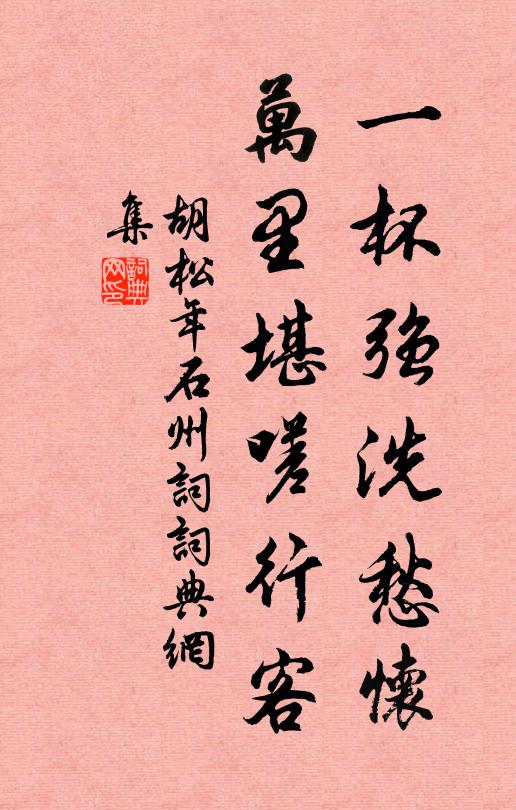 一杯強洗愁懷
萬里堪嗟行客
胡松年石州詞詞典網
集
詞典
网印